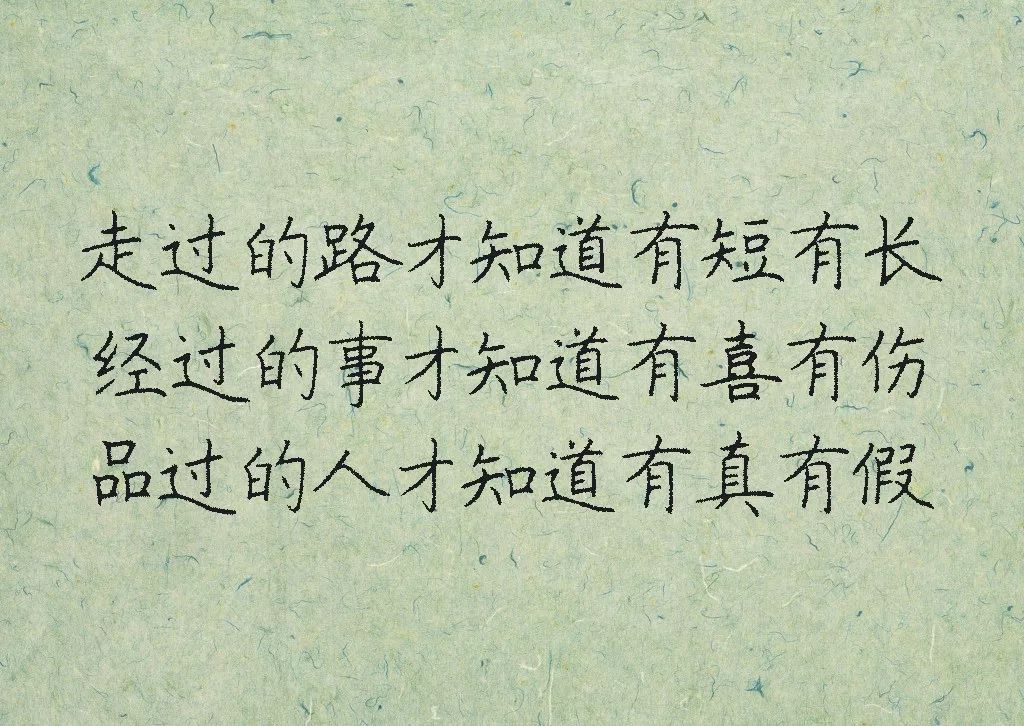 走过的路才知道有短有长
经过的事才知道有喜有伤
品过的人才知道有真有假